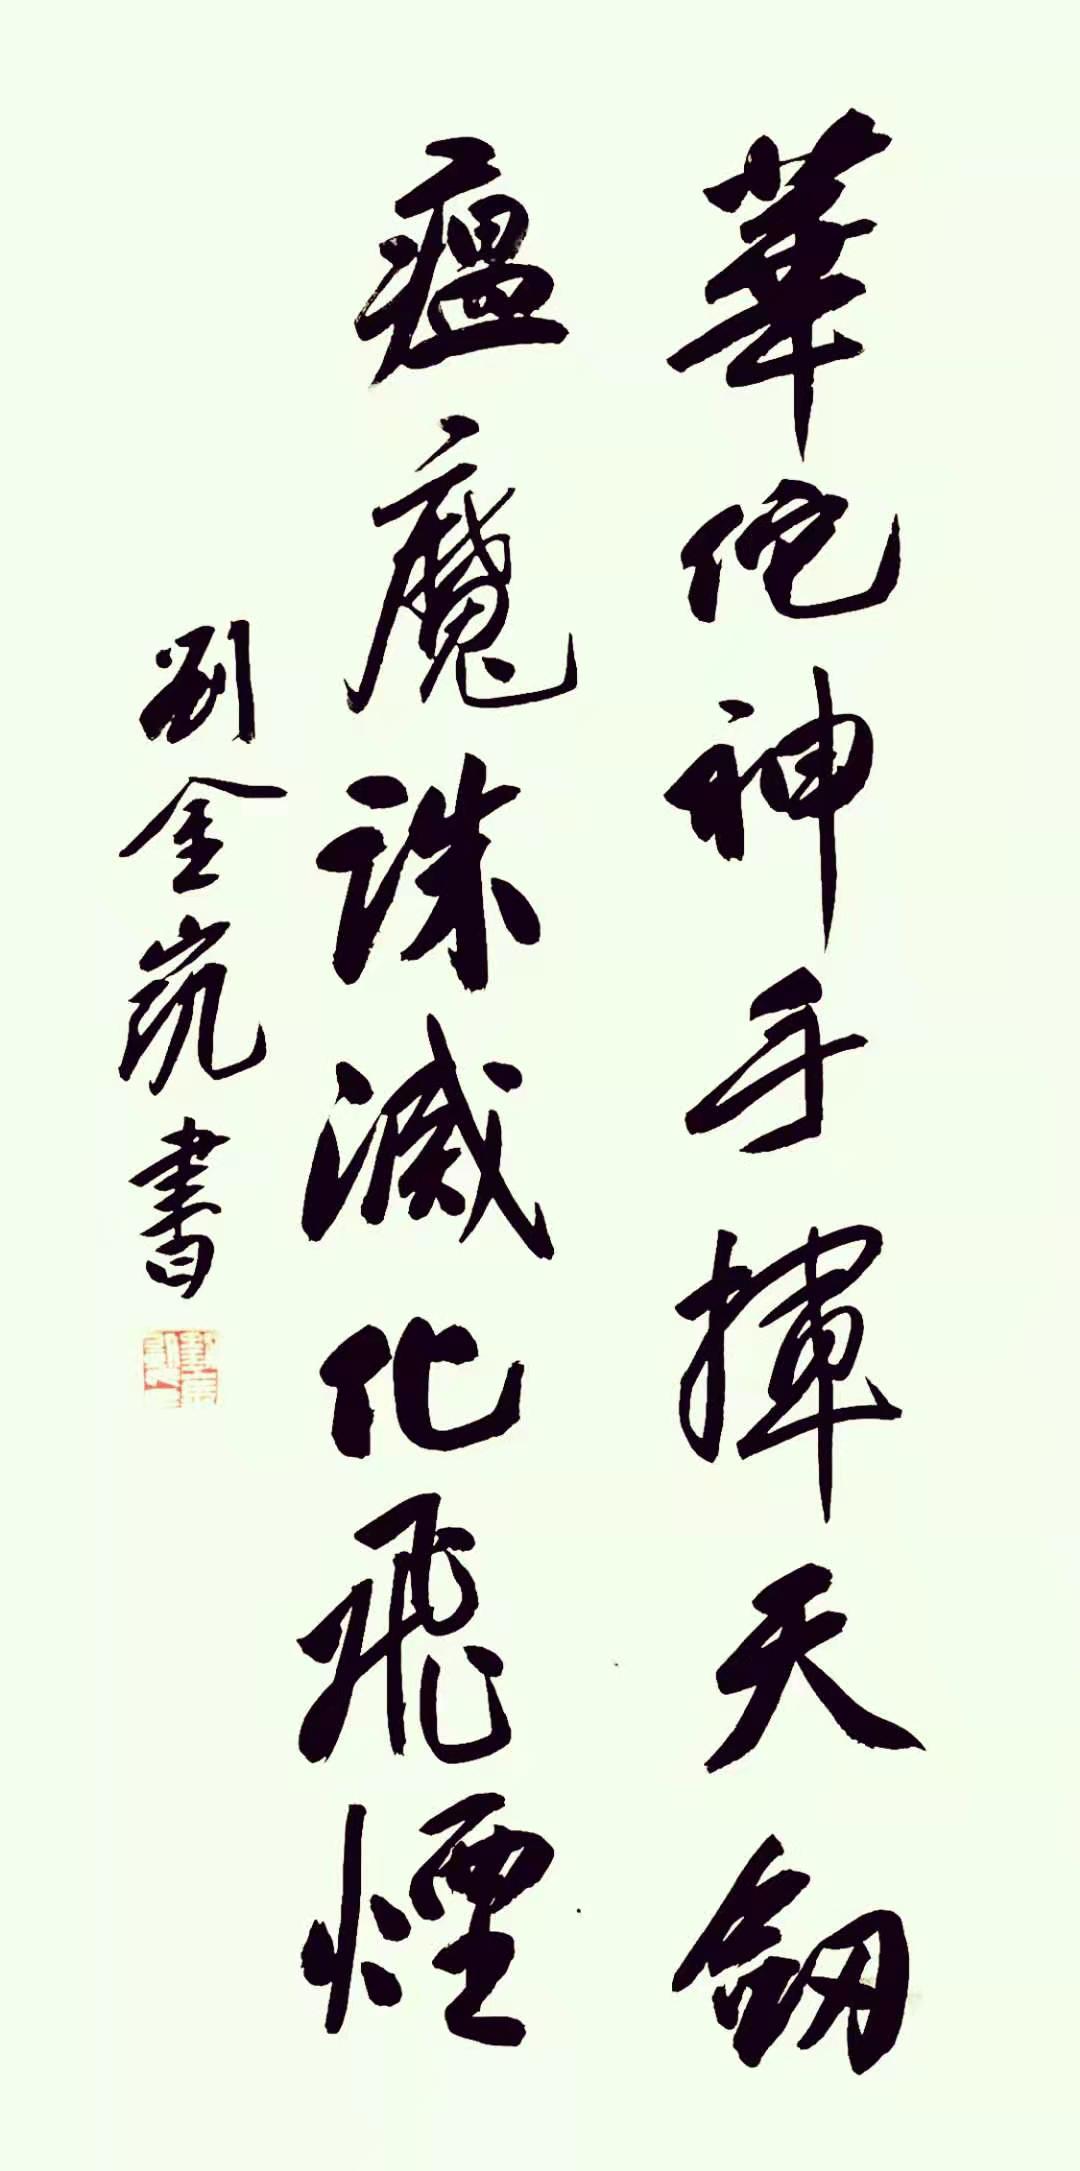 華佗神手揮天劒
瘟魔誅滅化飛煙
劉金凱書